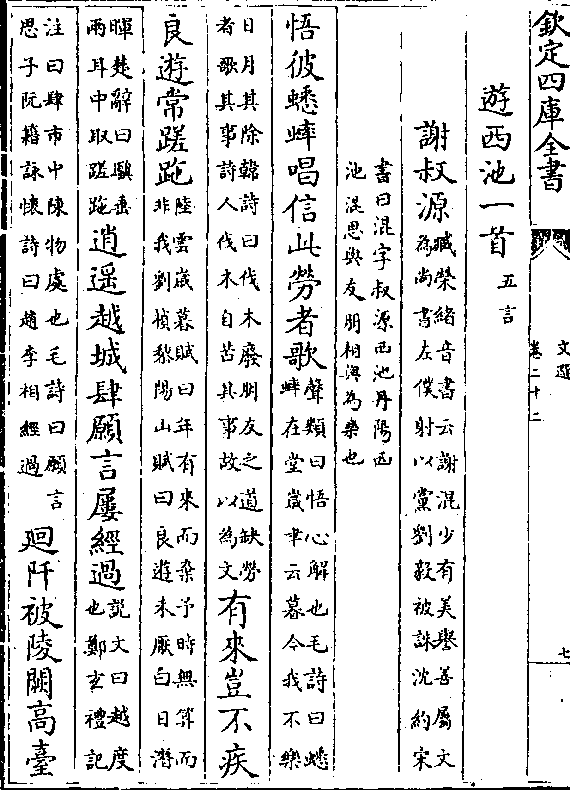 欽定四庫全書
文選
卷二十二
七
遊西池一首
五言
謝叔源
臧榮緒音書云謝混少有美譽善屬文
為尚書左僕射以黨劉毅被誅沈約宋
書曰混字叔源西池丹陽西
池混思與友朋相與為樂也
悟彼蟋蟀唱信此勞者歌
聲類曰悟心解也毛詩曰蟋
蟀在堂歲聿云暮今我不樂
日月其除韓詩曰伐木廢朋友之道缺勞
者歌其事詩人伐木自苦其事故以為文
有來豈不疾
良遊常蹉跎
陸雲歲暮賦曰年有來而棄予時無算而
非我劉楨黎陽山賦曰良遊未厭白日潛
暉楚辭曰驥垂
兩耳中坂蹉跎
逍遥越城肆願言屢經過
說文曰越度
也鄭玄禮記
注曰肆市中陳物處也毛詩曰願言
思子阮籍詠懷詩曰趙李相經過
廻阡被陵闕高臺